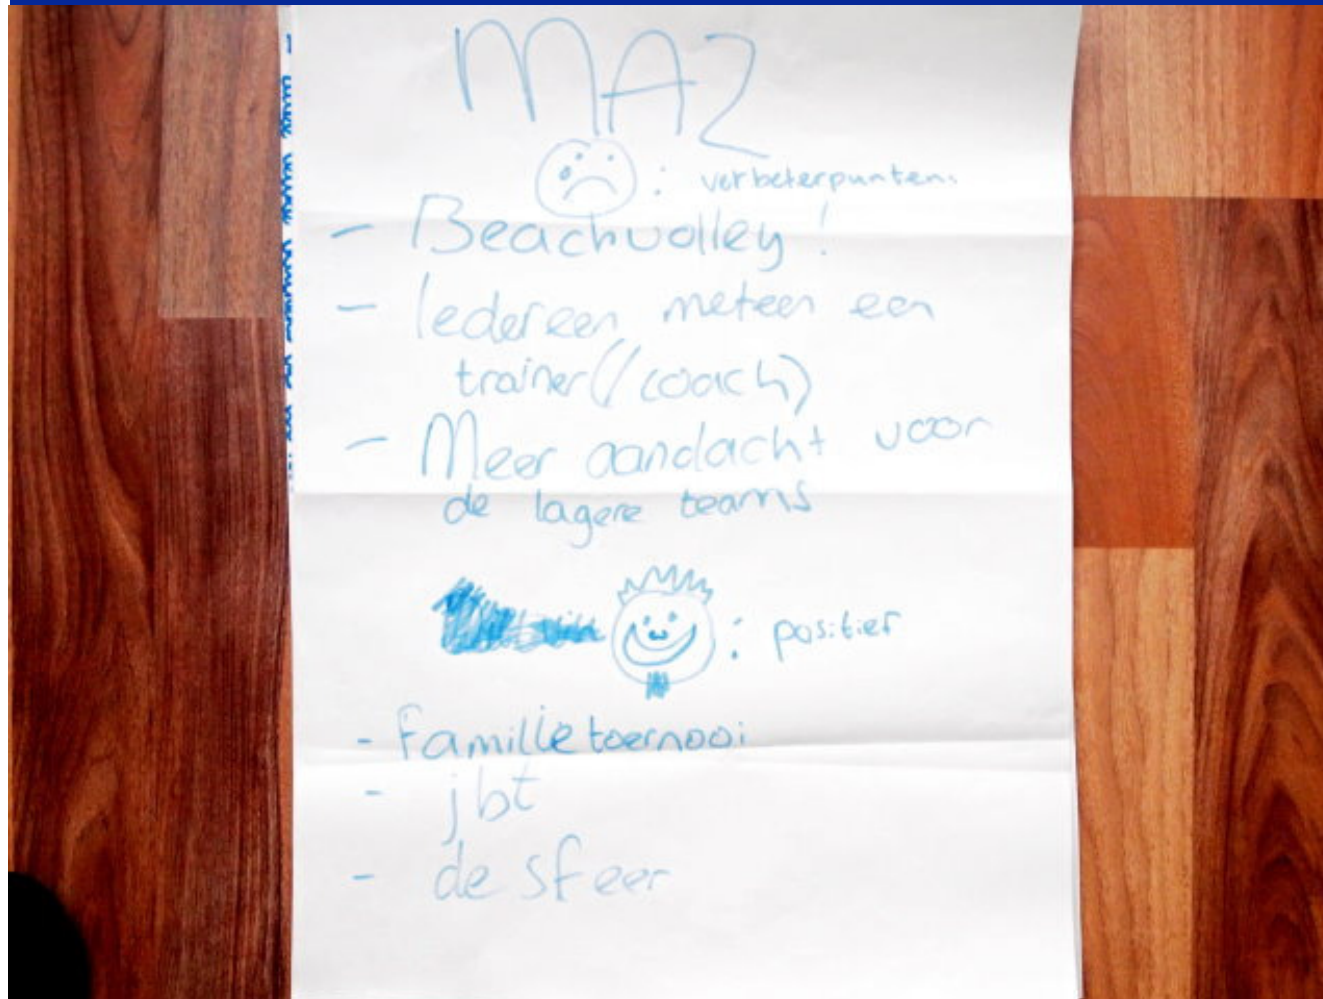 MA2
: verbeterpunten.
- Beachvolley!
- Iedereen meteen een
trainer(/coach)
- Meer aandacht voor
de lagere teams
: positief
- Familietoernooi
- jbt
- de sfeer